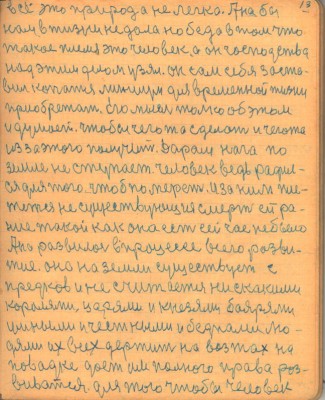 13
всё это природа не легка. Ана бы
нам в жизни недала победа в том что
такое тема это человек, а он господства
над этим делом узял. он сам себя заста-
вил копатся минимум для временной жизни
приобретат. Его мысл толко об этом
и думает. чтобы чего то сделат и чегото
из за этого получит. Даром нага по
земле не ступает. человек ведь радил-
ся для того. чтоб помереть. И за ним же-
тется не существующия смерт ей ра-
не такой как она ест сей час небыло
Ана развилася впроцессе всего разви-
тия. она на земли существует с
предков и не считается ни скакими
королями, царями и князями баярями
умными и честными и бедными лю-
дями их всех держит на возжах на
поводке дает им полного права роз-
виватся. для того чтобы человек